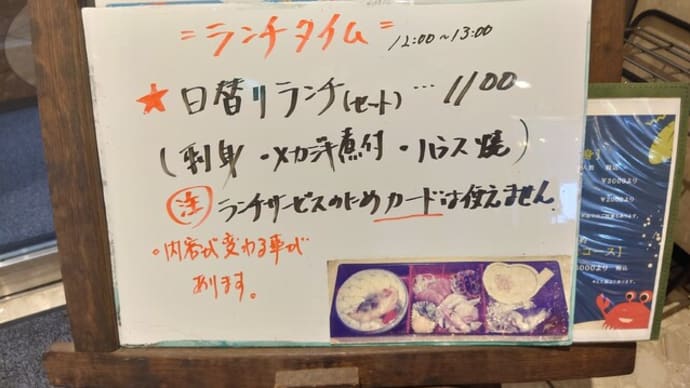 =ランチタイム= 12:00~13:00
★日替りランチ(セット)…1100
(刺身・メカジキ煮付・ハラス焼)
注 ランチサービスのためカードは使えません
・内容が変わる事が
あります。
¥3000より
コース]
000より 税込